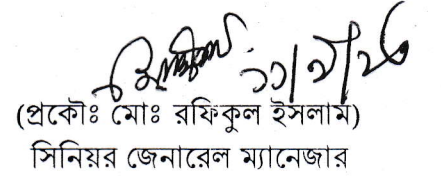 (প্রকৌঃ মোঃ রফিকুল ইসলাম)
সিনিয়র জেনারেল ম্যানেজার